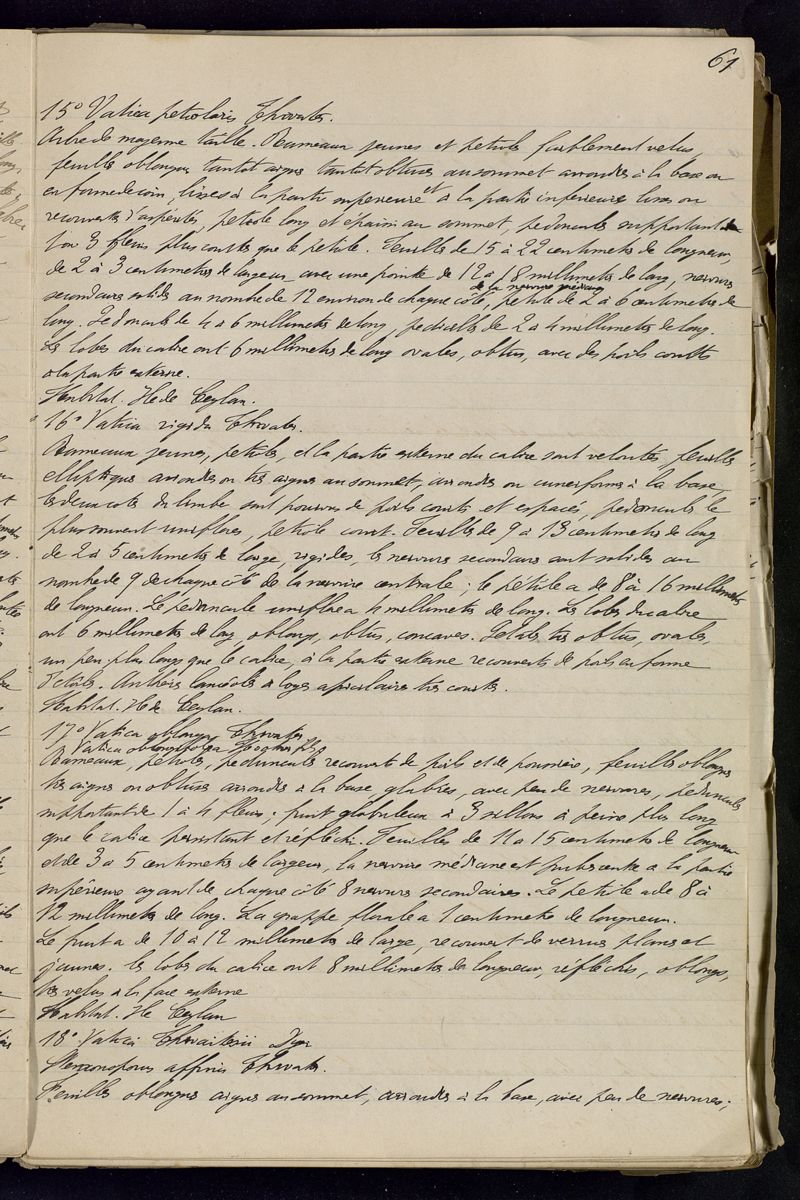 61
15° Vatica petiolaris Thwaites.
Arbre de moyenne taille. Rameaux jeunes et petiole faiblement velus,
feuilles oblongues tantot aigues tantot obtuses au sommet arrondies à la base ou
en forme de coin, lisses à la partie superieure et à la partie inferieure lisses ou
recouvertes d'asperités, petiole long et épaissi au sommet, pedoncule supportant
1 ou 3 fleurs plus courtes que le petiole. Feuilles de 15 à 22 centimetres de longueur,
de 2 à 3 centimetres de largeur avec une pointe de 12 à 18 millimetres de long, nervures
secondaires solides au nombre de 12 environ de chaque côté, petiole de 2 à 6 centimetres de
de la nervure médiane
long. Pedoncule de 4 à 6 millimetres de long, pedicelle de 2 à 4 millimetres de long.
Les lobes du calice ont 6 millimetres de long ovales, obtus, avec des poils courts
à la partie externe.
Habitat. Ile de Ceylan.
16° Vatica rigida Thwaites.
Rameaux jeunes, petioles, et la partie externe du calice sont veloutés, feuilles
elliptiques arrondies ou tres aigues au sommet, arrondies ou cuneiforms à la base
les deux cotés du limbe sont pourvus de poils courts et espacés, pedoncule le
plus souvent uniflore, petiole court. Feuilles de 9 à 13 centimetres de long
de 2 à 5 centimetres de large, rigides, les nervures secondaires sont solides au
nombre de 9 de chaque côté de la nervure centrale; le pétiole a de 8 à 16 millimetres
de longueur. Le pédoncule uniflore a 4 millimetres de long. Les lobes du calice
ont 6 millimetres de long, oblongs, obtus, concaves. Petales tres obtus, ovales,
un peu plus longs que le calice, à la partie externe recouverte de poils en forme
d'étoile. Anthères lancéolés à loges apiculaires tres courtes.
Habitat. Ile de Ceylan.
17° Vatica oblonga Thwaites
Vatica oblongifolia Hooker fils
Rameaux, petioles, pedoncules recouverts de poils et de poussière, feuilles oblongues
tres aigues ou obtuses arrondies à la base glabres, avec peu de nervures, pedoncules
supportant de 1 à 4 fleurs; fruit globuleux à 3 sillons à peine plus long
que le calice persistant et réfléchi. Feuilles de 11 à 15 centimetres de longueur
et de 3 à 5 centimetres de largeur, la nervure médiane est pubescente à la partie
supérieure ayant de chaque côté 8 nervures secondaires. Le petiole a de 8 à
12 millimetres de long. La grappe florale a 1 centimetre de longueur.
Le fruit a de 10 à 12 millimetres de large, recouvert de verrues planes et
jaunes. les lobes du calice ont 8 millimetres de longueur, réfléchis, oblongs,
tres velus à la face externe
Habitat. Ile Ceylan
18° Vatica Thwaitesii Dyer
Stemonoporus affinis Thwaites.
Feuilles oblongues aigues au sommet, arrondies à la base, avec peu de nervures;